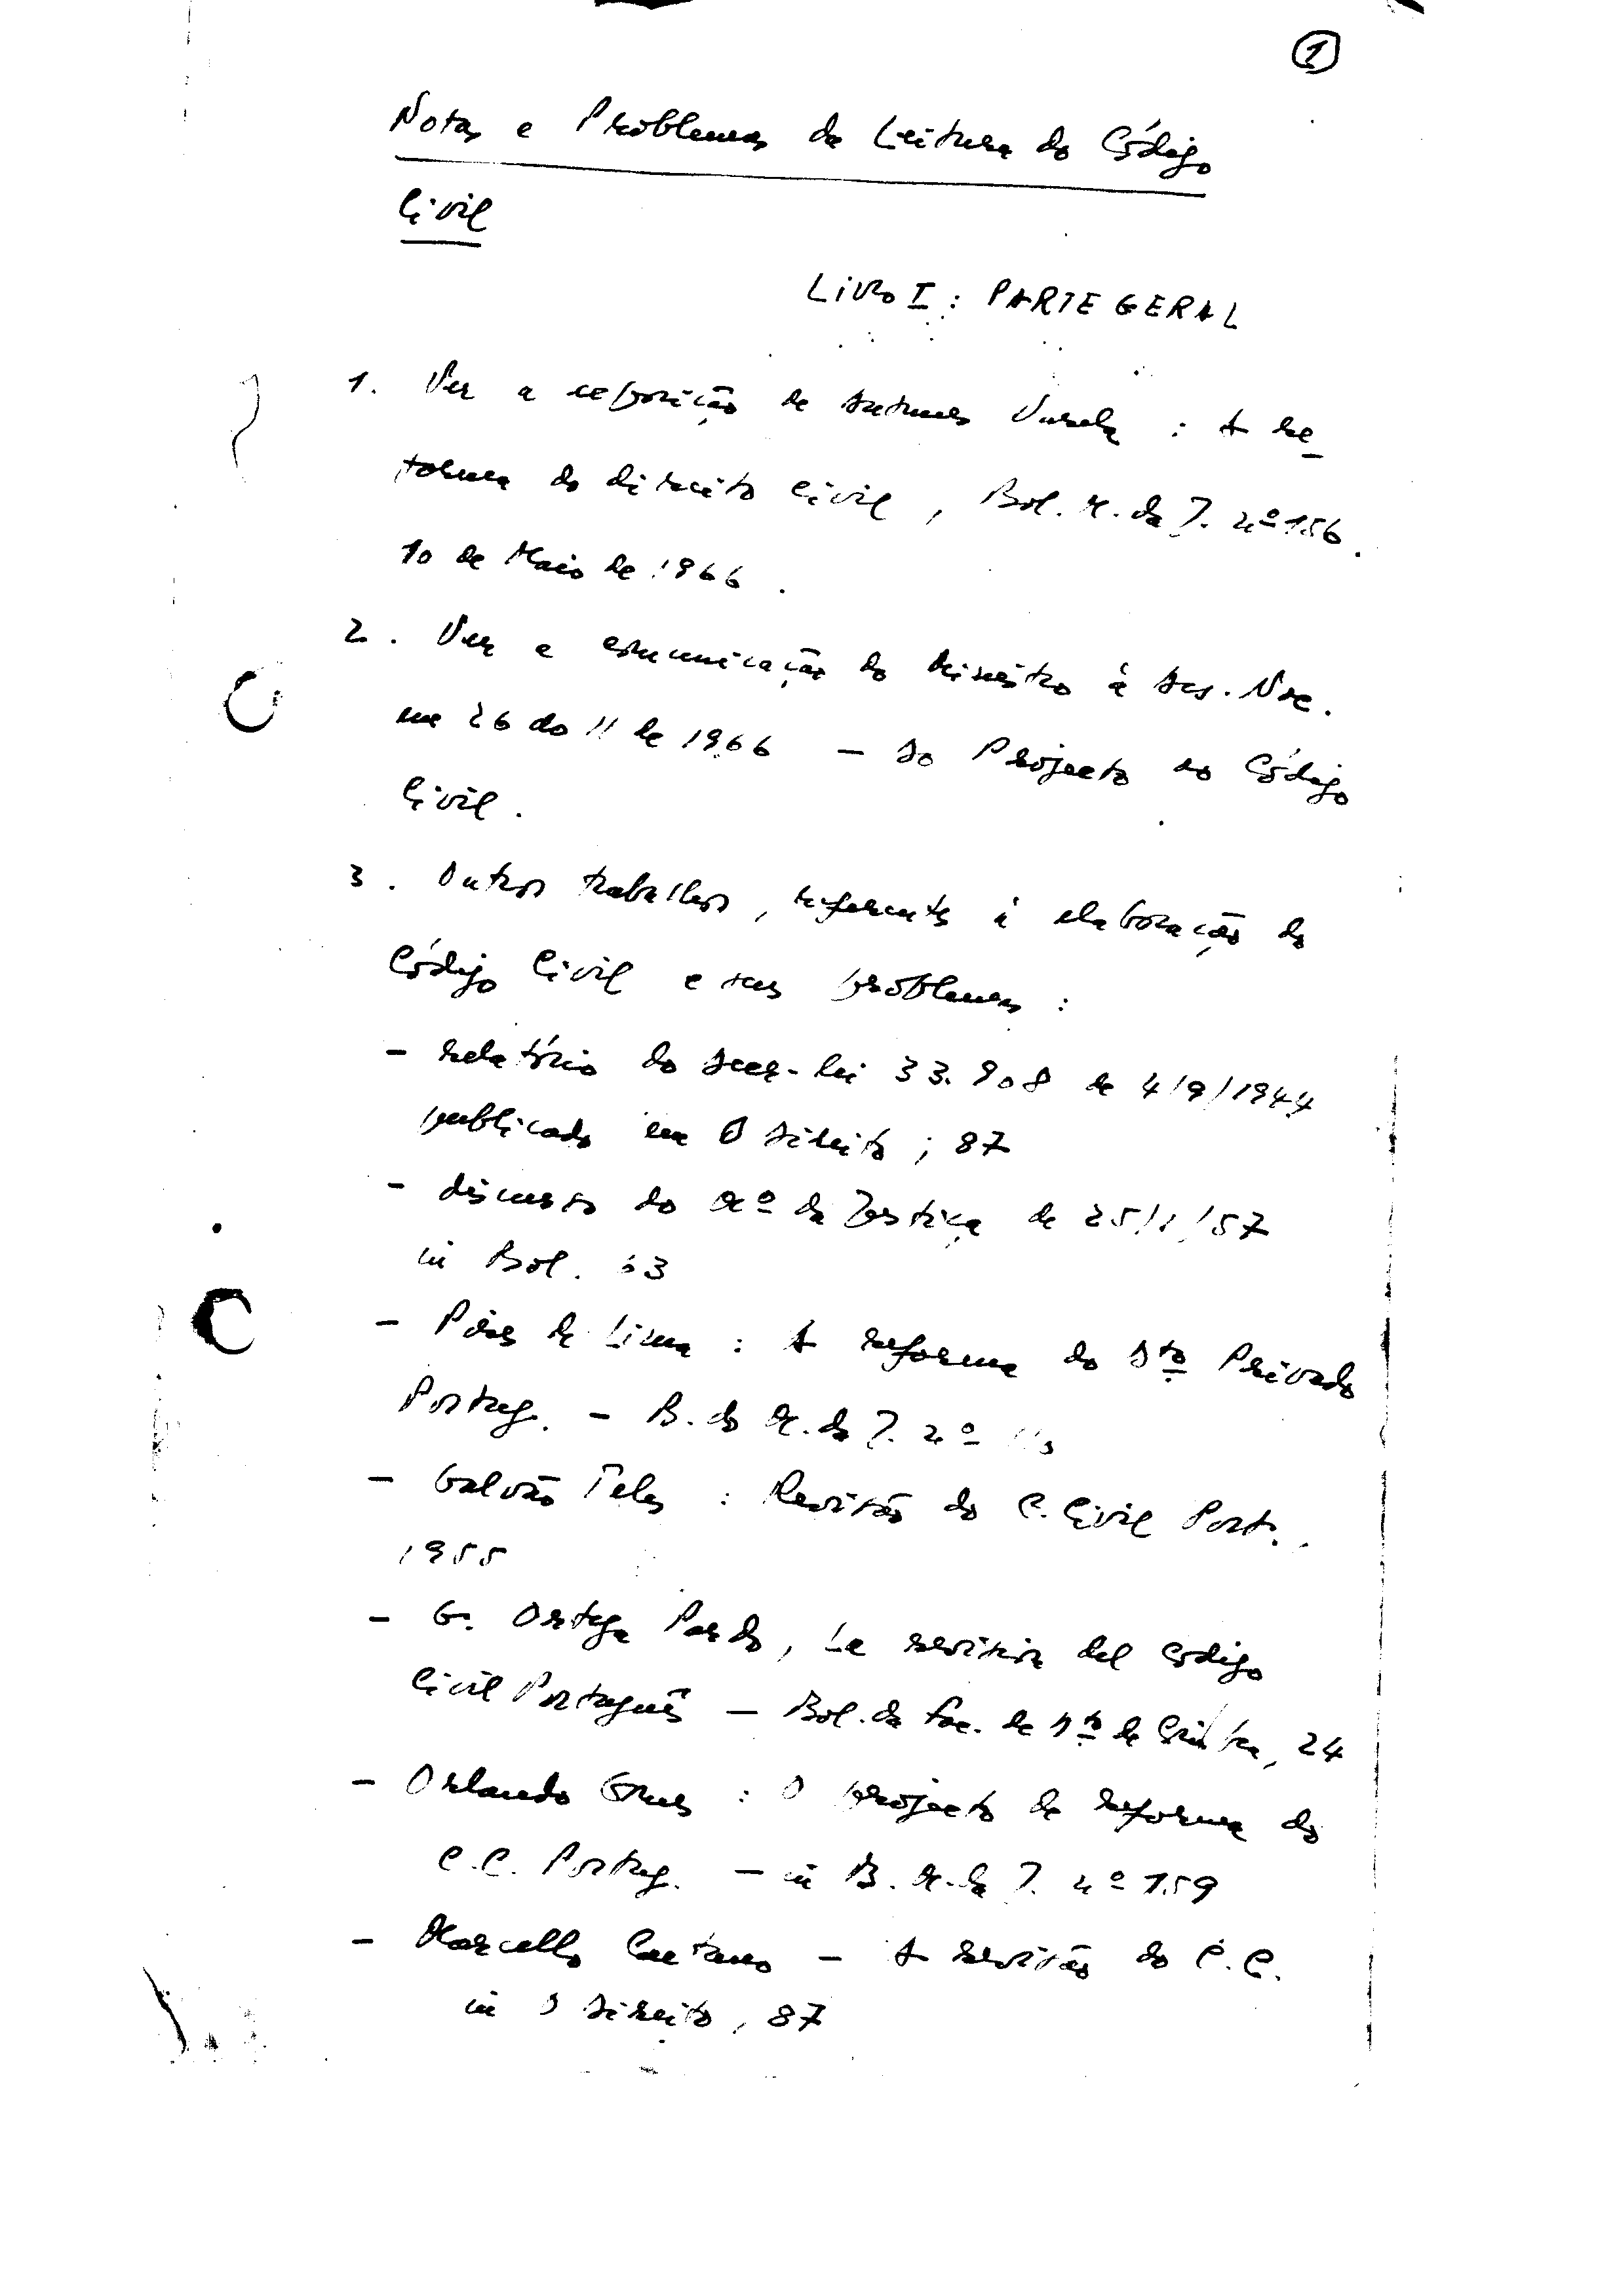 1
Notas e Problemas de Leitura do Código
Civil
Livro I : PARTE GERAL
1. Ver a exposição de Antunes Varela : A re_
forma do direito civil, Bol. M. da J. nº 156.
10 de Maio de 1966.
2. Ver a comunicação do Ministro à Ass. Nac.
em 26 do 11 de 1966 — Do Projecto ao Código
Civil.
3. Outros trabalhos, referentes à elaboração do
Código Civil e seus problemas :
- relatório do Decr-lei 33.908 de 4/9/1944
publicado em O Direito ; 87
- discurso do Mº da Justiça de 25/1/57
in Bol. 63
- Pires de Lima : A reforma do Dto Privado
Portug. - B. do M. da J. nº
- Galvão Teles : Revisão do C. Civil Port.,
1955
- G. Ortega Pardo, La revision del codigo
Civil Português — Bol. da Fac. de Dto de Coimbra, 24
- Orlando Gomes : O projecto de reforma do
C.C. Portug. - in B. M. da J. nº 159
- Marcello Caetano - A revisão do C.C.
in O Direito, 87